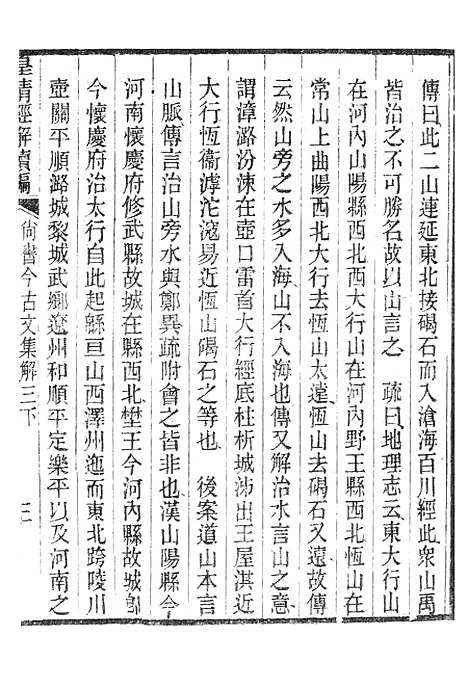 傳曰此二山連延東北接碣石而入滄海百川經此衆山禹
皆治之不可勝名故以山言之　疏曰地理志云東大行山
在河內山陽縣西北西大行山在河內野王縣西北恆山在
常山上曲陽西北大行去恆山太遠恆山去碣石又遠故傳
云然山旁之水多入海山不入海也傳又解治水言山之意
謂漳潞汾涑在壺口雷首大行經底柱析城沸出王屋淇近
大行恆衞滹沱滱易近恆山碣石之等也　後案道山本言
山脈傳言治山旁水與鄭異疏附會之皆非也漢山陽縣今
河南懷慶府修武縣故城在縣西北壄王今河內縣故城卽
今懷慶府治太行自此起緜亘山西澤州迤而東北跨陵川
壺關平順潞城黎城武鄉遼州和順平定樂平以及河南之
皇清經解續編　尙書今古文集解三下　三